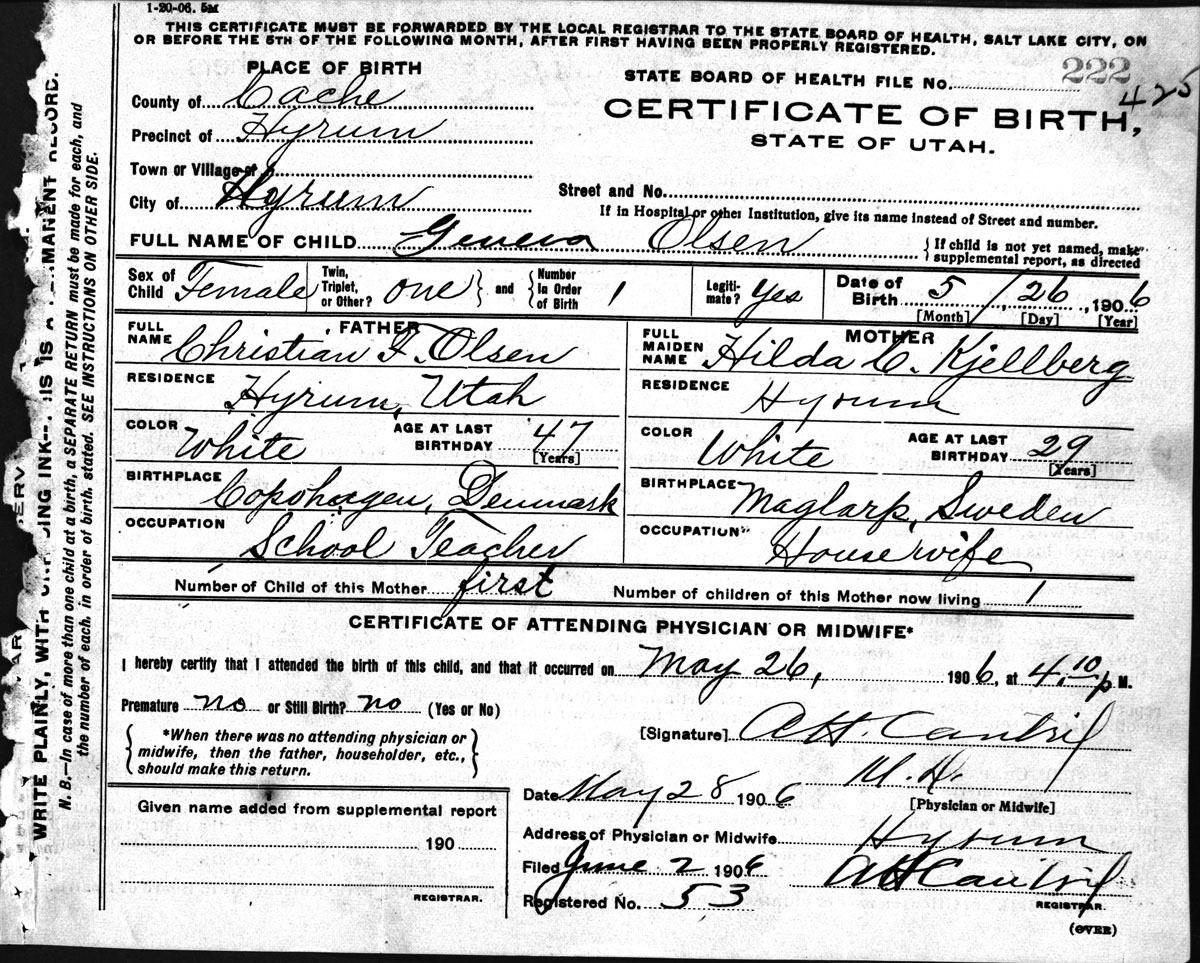 1-20-06. 5M
THIS CERTIFICATE MUST BE FORWARDED BY THE LOCAL REGISTRAR TO THE STATE BOARD OF HEALTH, SALT LAKE CITY, ON
OR BEFORE THE 5TH OF THE FOLLOWING MONTH, AFTER FIRST HAVING BEEN PROPERLY REGISTERED.
PLACE OF BIRTH
STATE BOARD OF HEALTH FILE No. 222
425
County of Cache
CERTIFICATE OF BIRTH,
Precinct of Hyrum
STATE OF UTAH.
Town or Village of
Street and No.
City of Hyrum
If in Hospital or other Institution, give its name instead of Street and number.
FULL NAME OF CHILD Geneva Olsen
{If child is not yet named, make
supplemental report, as directed
Sex of Child Female
Twin, Triplet, or Other? one } and { Number in Order of Birth 1
Legiti-mate? Yes
Date of Birth 5 / 26, 1906
[Month] [Day] [Year]
FATHER
FULL NAME Christian F. Olsen
RESIDENCE Hyrum, Utah
COLOR White
AGE AT LAST BIRTHDAY 47
[Years]
BIRTHPLACE Copohagen, Denmark
OCCUPATION School Teacher
MOTHER
FULL MAIDEN NAME Hilda C. Kjellberg
RESIDENCE Hyrum
COLOR White
AGE AT LAST BIRTHDAY 29
[Years]
BIRTHPLACE Maglarp, Sweden
OCCUPATION Housewife
Number of Child of this Mother first Number of children of this Mother now living 1
CERTIFICATE OF ATTENDING PHYSICIAN OR MIDWIFE*
I hereby certify that I attended the birth of this child, and that it occurred on May 26, 1906, at 4.10 p M.
Premature no or Still Birth? no (Yes or No)
{*When there was no attending physician or
midwife, then the father, householder, etc.,
should make this return.}
[Signature] AH. Cantril
M. D.
[Physician or Midwife]
Date May 28 1906
Address of Physician or Midwife Hyrum
Filed June 2 1906 AH Cantril
REGISTRAR.
Registered No. 53
(OVER)
Given name added from supplemental report
190
REGISTRAR.
WRITE PLAINLY, WITH ING INK IS IS A MANENT RECORD.
N. B.—In case of more than one child at a birth, a SEPARATE RETURN must be made for each, and
the number of each, in order of birth, stated. SEE INSTRUCTIONS ON OTHER SIDE.